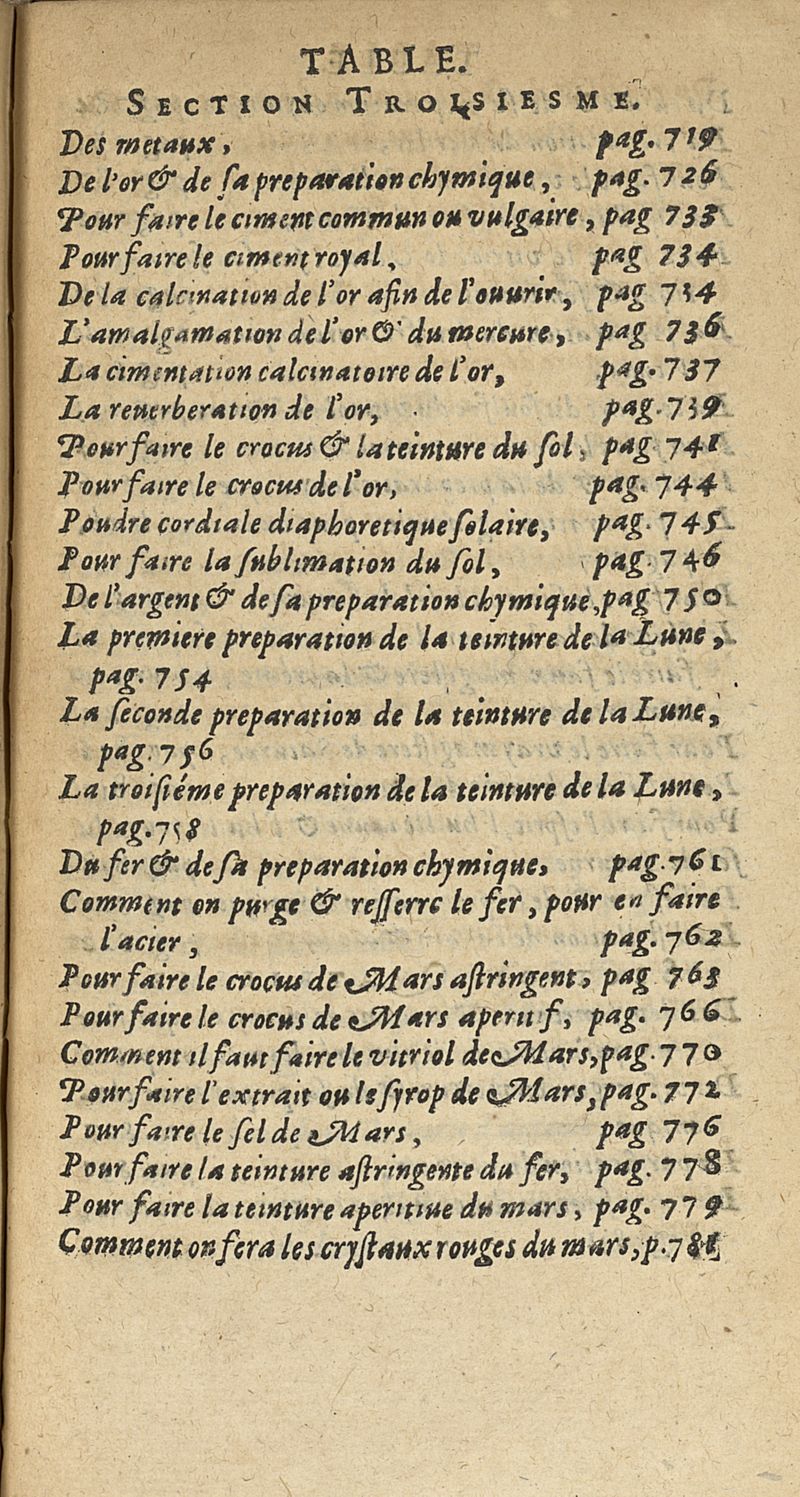 TABLE.
SECTION TROISIESME.
Des metaux, pag. 719
De l'or & de ſa preparation chymique, pag. 726
Pour faire le ciment commun ou vulgaire, pag 733
Pour faire le ciment royal, pag 734
De la calcination de l'or afin de l'ouurir, pag 734
L'amalgamation de l'or & du mercure, pag 736
La cimentation calcinatoire de l'or, pag. 737
La reuerberation de l'or, pag. 739
Pour faire le crocus & la teinture du ſol, pag 741
Pour faire le crocus de l'or, pag. 744
Poudre cordiale diaphoretique ſolaire, pag. 745
Pour faire la ſublimation du ſol, pag. 746
De l'argent & de ſa preparation chymique, pag 750
La premiere preparation de la teinture de la Lune,
pag. 754
La ſeconde preparation de la teinture de la Lune,
pag. 756
La troiſiéme preparation de la teinture de la Lune,
pag. 758
Du fer & de ſa preparation chymique, pag. 761
Comment on purge & reſſerre le fer, pour en faire
l'acier, pag. 762
Pour faire le crocus de Mars aſtringent, pag 763
Pour faire le crocus de Mars aperitif, pag. 766
Comment il faut faire le vitriol de Mars, pag. 770
Pour faire l'extrait ou le ſyrop de Mars, pag. 772
Pour faire le ſel de Mars, pag 776
Pour faire la teinture aſtringente du fer, pag. 778
Pour faire la teinture aperitiue du mars, pag. 779
Comment on fera les cryſtaux rouges du mars, p.